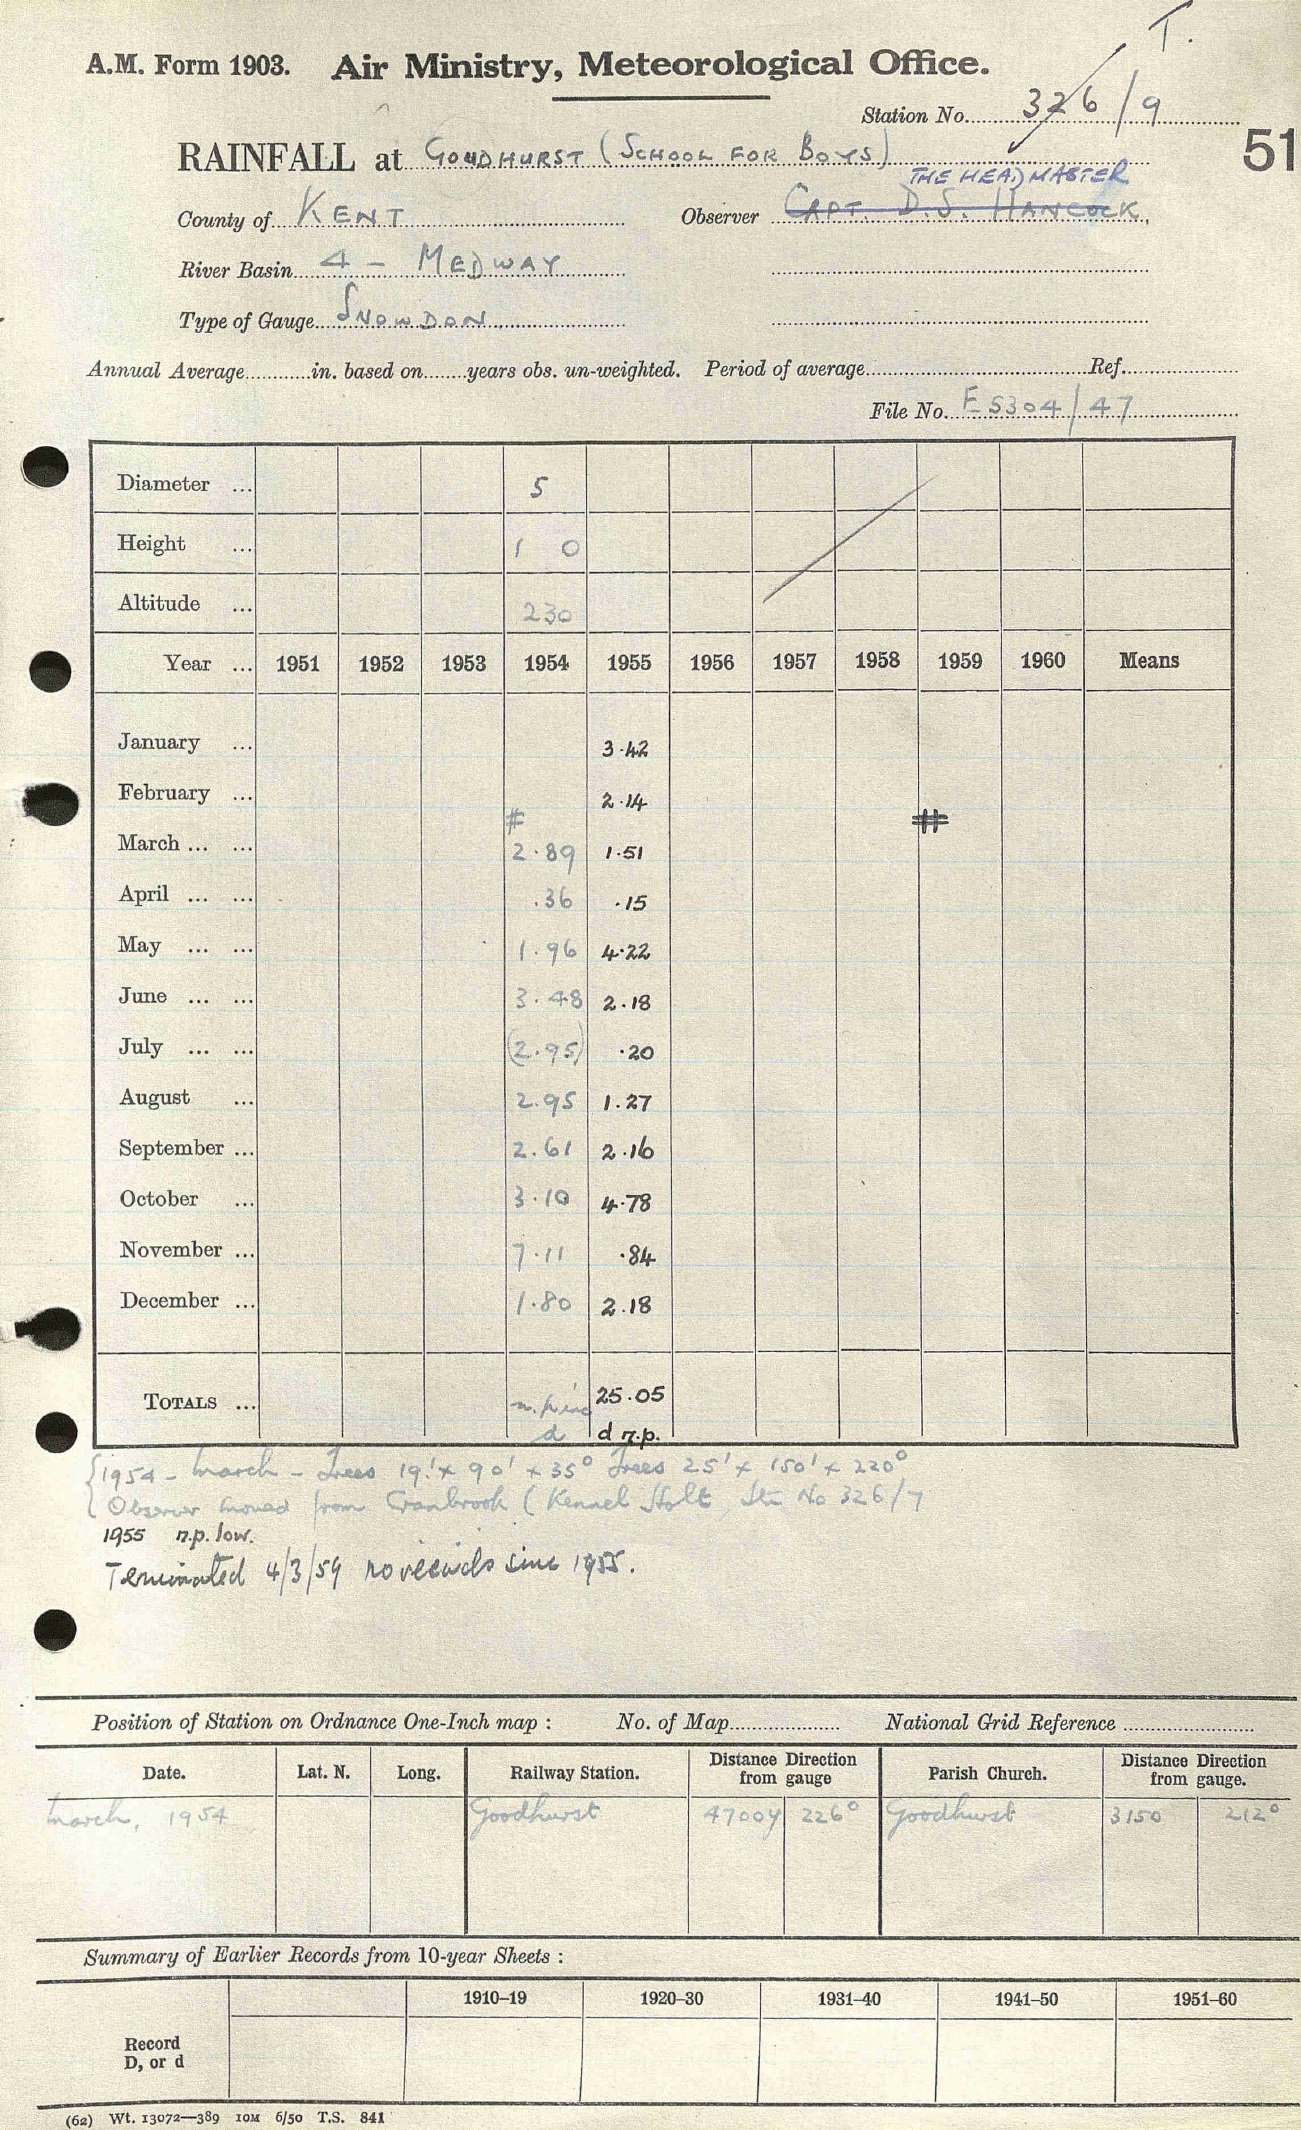 T.
A.M. Form 1903. Air Ministry, Meteorological Office.
Station No. 326/9
51
RAINFALL at GOUDHURST (SCHOOL FOR BOYS)
THE HEADMASTER
County of KENT Observer CAPT. D.S. HANCOCK
River Basin 4 - MEDWAY
Type of Gauge SNOWDON
Annual Average in. based on years obs. un-weighted. Period of average Ref.
File No. ES304/47
Diameter ... 5
Height ... 1 0
Altitude ... 230
Year ... 1951 1952 1953 1954 1955 1956 1957 1958 1959 1960 Means
January ... 3.42
February ... 2.14
# #
March ... ... 2.89 1.51
April ... ... .36 .15
May ... ... 1.96 4.22
June ... ... 3.48 2.18
July ... ... (2.95) .20
August ... 2.95 1.27
September ... 2.61 2.16
October ... 3.10 4.78
November ... 7.11 .84
December ... 1.80 2.18
TOTALS ... 25.05
d d r.p.
1954 - March - Trees 19' x 90' x 35° Trees 25' x 150' x 220°
Observer moved from Cranbrook (Kennel Holt, Stn No 326/7
1955 r.p. low.
Terminated 4/3/59 no records since 1955.
Position of Station on Ordnance One-Inch map : No. of Map National Grid Reference
Date. Lat. N. Long. Railway Station. Distance Direction from gauge Parish Church. Distance Direction from gauge.
March, 1954 Goodhurst 4700y 226° Goodhurst 3150 212°
Summary of Earlier Records from 10-year Sheets :
1910–19 1920–30 1931–40 1941–50 1951–60
Record
D, or d
(62) Wt. 13072—389 10M 6/50 T.S. 841